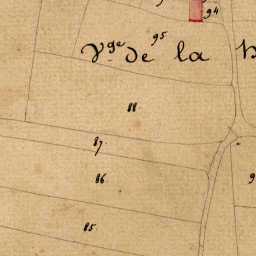 94
95
Vge de la
88
87
86
85